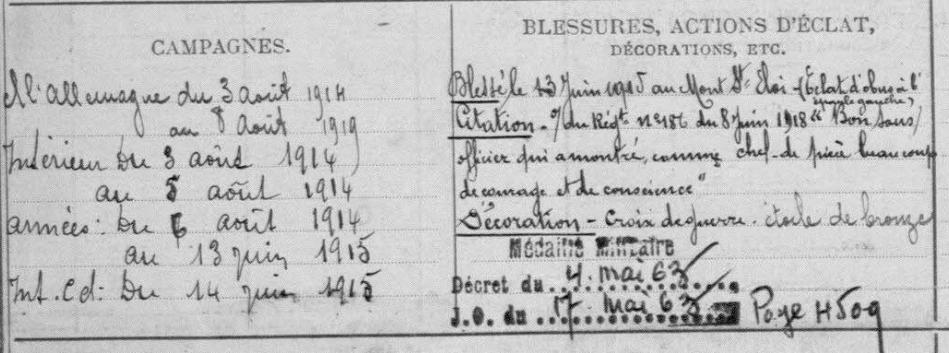 CAMPAGNES.
A l'allemagne du 3 août 1914
au 8 août 1919
Intérieur Du 3 août 1914
au 5 août 1914
armées: Du 6 août 1914
au 13 juin 1915
Int. Cd: Du 14 juin 1915
BLESSURES, ACTIONS D'ÉCLAT,
DÉCORATIONS, ETC.
Blessé, le 13 Juin 1915 au Mont St Eloi - (Eclat d'obus à l'
épaule gauche)
Citation - O/ du Régt n° 186 du 8 Juin 1918 "Bon sous/
officier qui a montré, comme chef de pièce beaucoup
de courage et de conscience"
Décoration - Croix de guerre. étoile de bronze
Médaille Militaire
Décret du 4. mai 63
J.O. du 17 mai 63 Page 4509